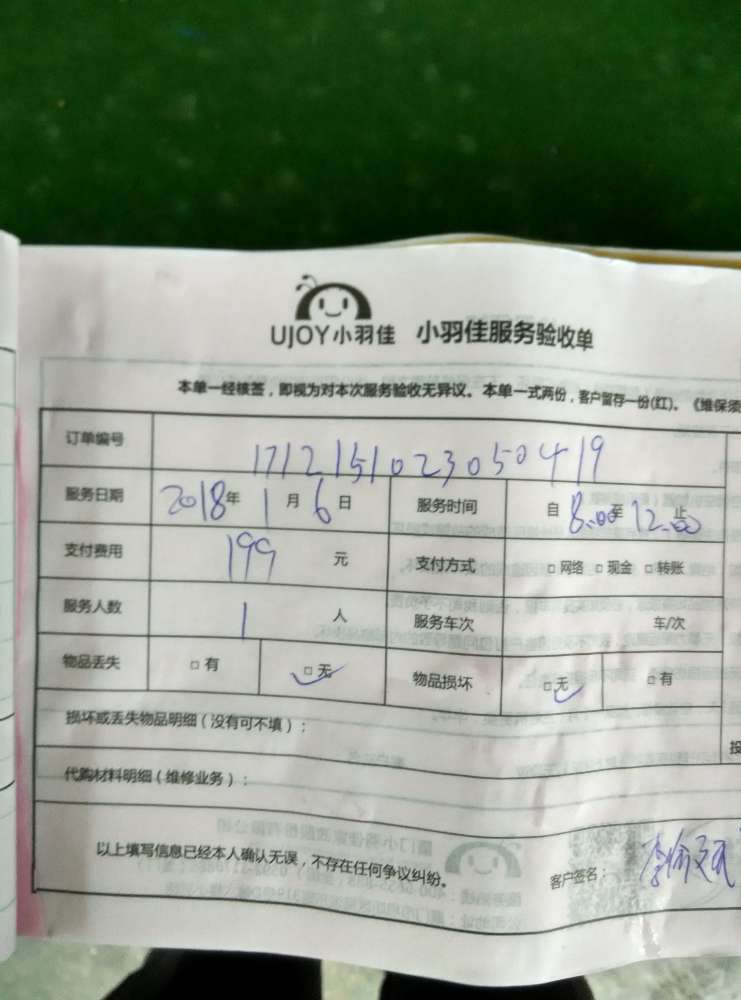 UJOY小羽佳 小羽佳服务验收单
本单一经核签，即视为对本次服务验收无异议。本单一式两份，客户留存一份(红)。《维保须
订单编号 1712151023050419
服务日期 2018年1月6日 服务时间 自8:00至12:00止
支付费用 199元 支付方式 □网络 □现金 □转账
服务人数 1人 服务车次 车/次
物品丢失 □有 □无 物品损坏 □无 □有
损坏或丢失物品明细（没有可不填）：
代购材料明细（维修业务）：
以上填写信息已经本人确认无误，不存在任何争议纠纷。 客户签名：
投